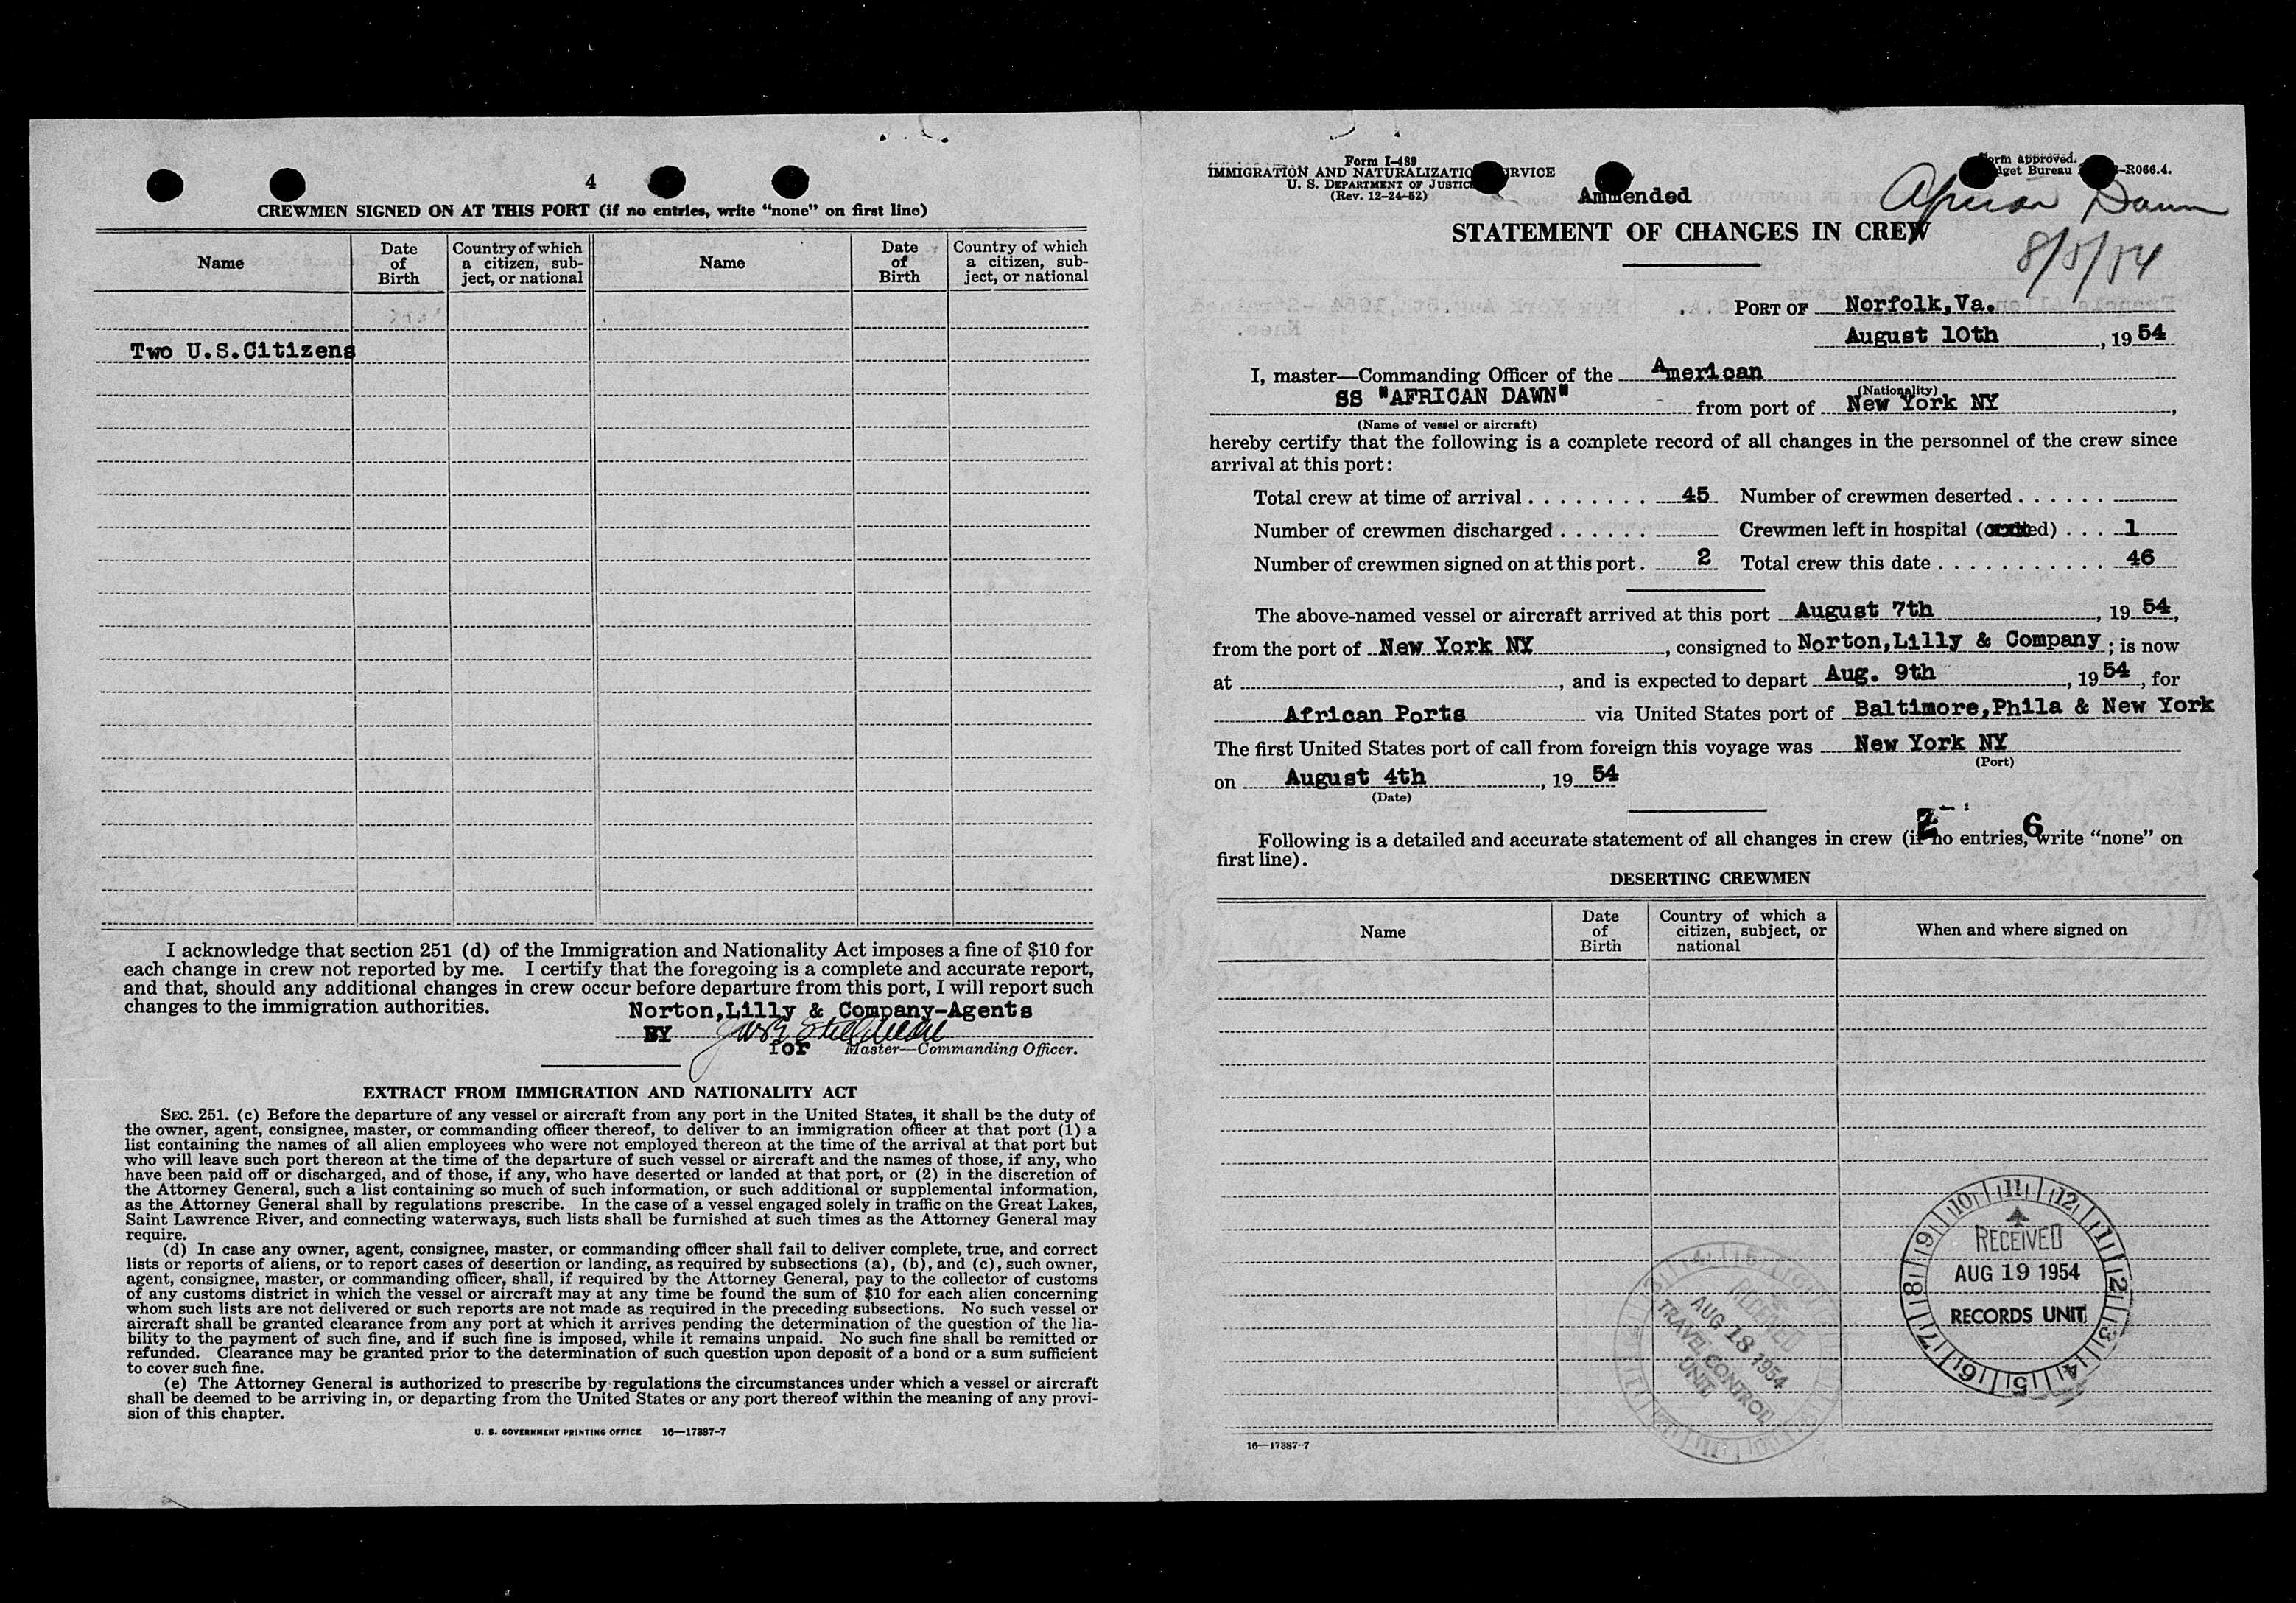 4
CREWMEN SIGNED ON AT THIS PORT (if no entries, write “none” on first line)
Name
Date of Birth
Country of which a citizen, subject, or national
Name
Date of Birth
Country of which a citizen, subject, or national
Two U.S.Citizens
I acknowledge that section 251 (d) of the Immigration and Nationality Act imposes a fine of $10 for
each change in crew not reported by me. I certify that the foregoing is a complete and accurate report,
and that, should any additional changes in crew occur before departure from this port, I will report such
changes to the immigration authorities.
Norton,Lilly & Company-Agents
BY
for Master—Commanding Officer.
EXTRACT FROM IMMIGRATION AND NATIONALITY ACT
SEC. 251. (c) Before the departure of any vessel or aircraft from any port in the United States, it shall be the duty of
the owner, agent, consignee, master, or commanding officer thereof, to deliver to an immigration officer at that port (1) a
list containing the names of all alien employees who were not employed thereon at the time of the arrival at that port but
who will leave such port thereon at the time of the departure of such vessel or aircraft and the names of those, if any, who
have been paid off or discharged, and of those, if any, who have deserted or landed at that port, or (2) in the discretion of
the Attorney General, such a list containing so much of such information, or such additional or supplemental information,
as the Attorney General shall by regulations prescribe. In the case of a vessel engaged solely in traffic on the Great Lakes,
Saint Lawrence River, and connecting waterways, such lists shall be furnished at such times as the Attorney General may
require.
(d) In case any owner, agent, consignee, master, or commanding officer shall fail to deliver complete, true, and correct
lists or reports of aliens, or to report cases of desertion or landing, as required by subsections (a), (b), and (c), such owner,
agent, consignee, master, or commanding officer, shall, if required by the Attorney General, pay to the collector of customs
of any customs district in which the vessel or aircraft may at any time be found the sum of $10 for each alien concerning
whom such lists are not delivered or such reports are not made as required in the preceding subsections. No such vessel or
aircraft shall be granted clearance from any port at which it arrives pending the determination of the question of the lia-
bility to the payment of such fine, and if such fine is imposed, while it remains unpaid. No such fine shall be remitted or
refunded. Clearance may be granted prior to the determination of such question upon deposit of a bond or a sum sufficient
to cover such fine.
(e) The Attorney General is authorized to prescribe by regulations the circumstances under which a vessel or aircraft
shall be deemed to be arriving in, or departing from the United States or any port thereof within the meaning of any provi-
sion of this chapter.
U. S. GOVERNMENT PRINTING OFFICE 16—17387-7
Form I-489
IMMIGRATION AND NATURALIZATION SERVICE
U. S. DEPARTMENT OF JUSTICE
(Rev. 12-24-52)
Form approved.
Budget Bureau -R066.4.
Ammended
African Dawn
STATEMENT OF CHANGES IN CREW
8/5/54
PORT OF Norfolk,Va.
August 10th, 1954
I, master—Commanding Officer of the American
(Nationality)
SS "AFRICAN DAWN" from port of New York NY,
(Name of vessel or aircraft)
hereby certify that the following is a complete record of all changes in the personnel of the crew since
arrival at this port:
Total crew at time of arrival . . . . . . . . 45 Number of crewmen deserted . . . . . .
Number of crewmen discharged . . . . . . Crewmen left in hospital (ed) . . . 1
Number of crewmen signed on at this port . 2 Total crew this date . . . . . . . . . . . 46
The above-named vessel or aircraft arrived at this port August 7th, 1954,
from the port of New York NY, consigned to Norton,Lilly & Company; is now
at , and is expected to depart Aug. 9th, 1954, for
African Ports via United States port of Baltimore,Phila & New York
The first United States port of call from foreign this voyage was New York NY
(Port)
on August 4th, 1954
(Date)
2 6
Following is a detailed and accurate statement of all changes in crew (if no entries, write “none” on
first line).
DESERTING CREWMEN
Name
Date of Birth
Country of which a citizen, subject, or national
When and where signed on
RECEIVED
AUG 18 1954
TRAVEL CONTROL
UNIT
10 11 12 1 2 3 4 5 6 7 8 9
RECEIVED
AUG 19 1954
RECORDS UNIT
16—17387-7